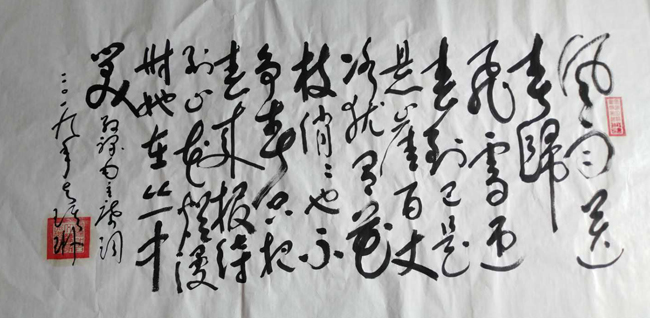 風雨送
春歸
飛雪迎
春到已是
悬崖百丈
冰犹有花
枝俏〻也不
争春只把
春来报待
到山花爛漫
时她在丛中
笑 毛主席词
二〇一九年